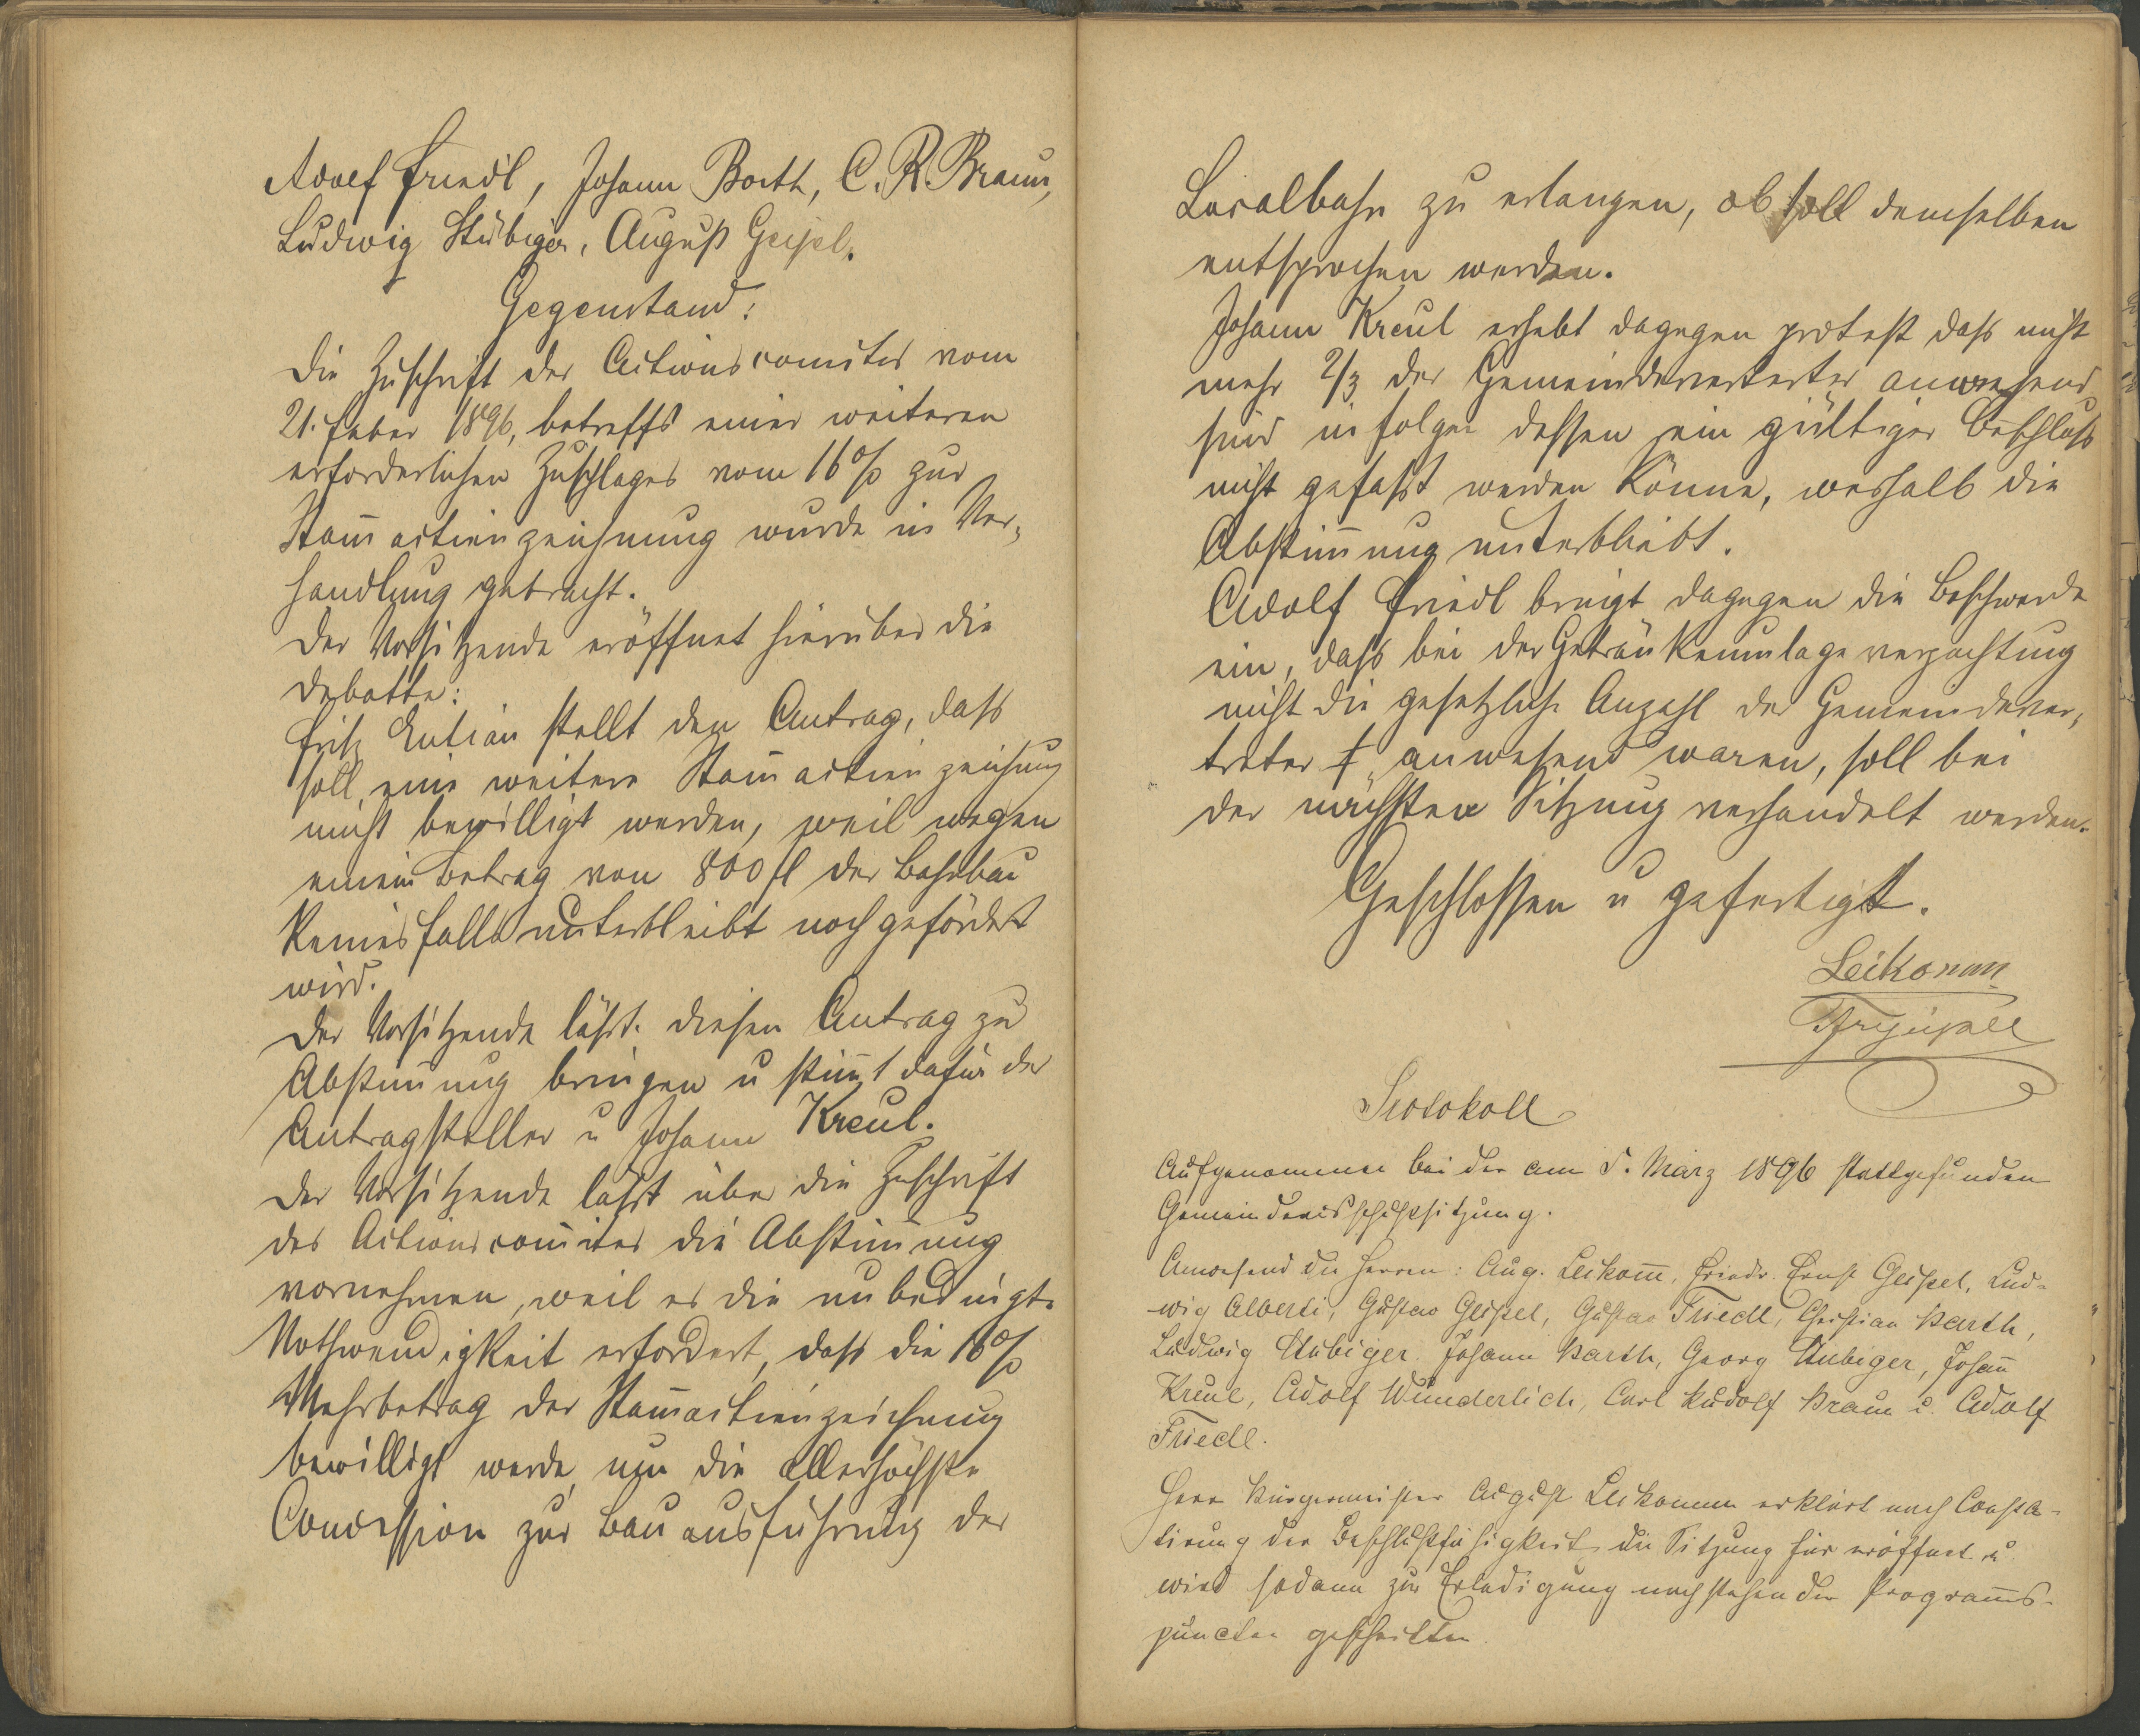 Adolf Friedl, Johann Barth, C. R. Braun,
Ludwig Stübiger, August Geipel.
Gegenstand:
Die Zuschrift des Actionscomités vom
21. Feber 1896, betreffs eines weiteren
erforderlichen Zuschlages vom 16% zur
Stam̄actienzeichnung wurde in Ver¬
handlung gebracht.
Der Vorsitzende eröffnet hierüber die
Debatte:
Fritz stellt den Antrag, daß
soll eine weitere Stam̄actienzeichnung
nicht bewilligt werden, weil wegen
einem Betrag von 800 fl der Bahnbau
Keinesfalls unterbleibt noch gefördert
wird.
Der Vorsitzende läßt diesen Antrag zu
Abstim̄ung bringen u stim̄t dafür der
Antragsteller u Johann Kreul.
Der Vorsitzende läßt über die Zuschrift
des Actionscomites die Abstim̄ung
vornehmen, weil es die unbedingte
Nothwendigkeit erfordert, daß die 16%
Mehrbetrag der Stam̄actienzeichnung
bewilligt werde, um die allerhöchste
Concession zur Bauausführung der
Localbahn zu erlangen, ob soll demselben
entsprochen werden.
Johann Kreul erhebt dagegen protest daß nicht
mehr 2/3 der Gemeindevertreter anwesend
sind in folge dessen ein gültiger Beschluß
nicht gefaßt werden Könne, weshalb die
Abstim̄ung unterbliebt.
Adolf Friedl bringt dagegen die Beschwerde
ein, daß bei der Getränkeumlage verpachtung
nicht die gesetzliche Anzahl der Gemeindever¬
treter anwesend waren, soll bei
der nächsten Sitzung verhandelt werden.
Geschlossen u gefertigt.
Leikomm
Protokoll
Aufgenommen bei der am 5. März 1896 stattgefunden
Gemeindeausschußsitzung.
Anwesend die Herren: Aug. Leikom̄, Friedr. Ernst Geipel, Lud-
wig Alberti, Gustav Geipel, Gustav Friedl, Christian Barth,
Ludwig Stübiger, Johann Barth, Georg Stübiger, Johan̄
Kreul, Adolf Wunderlich, Carl Rudolf Braun u. Adolf
Friedl.
Herr Bürgermeister August Leikomm erklärt nach Consta-
tirung der Beschlußfähigkeit die Sitzung für eröffnet u.
wird sodann zur Erledigung nachstehender Program̄s-
puncten geschritten.